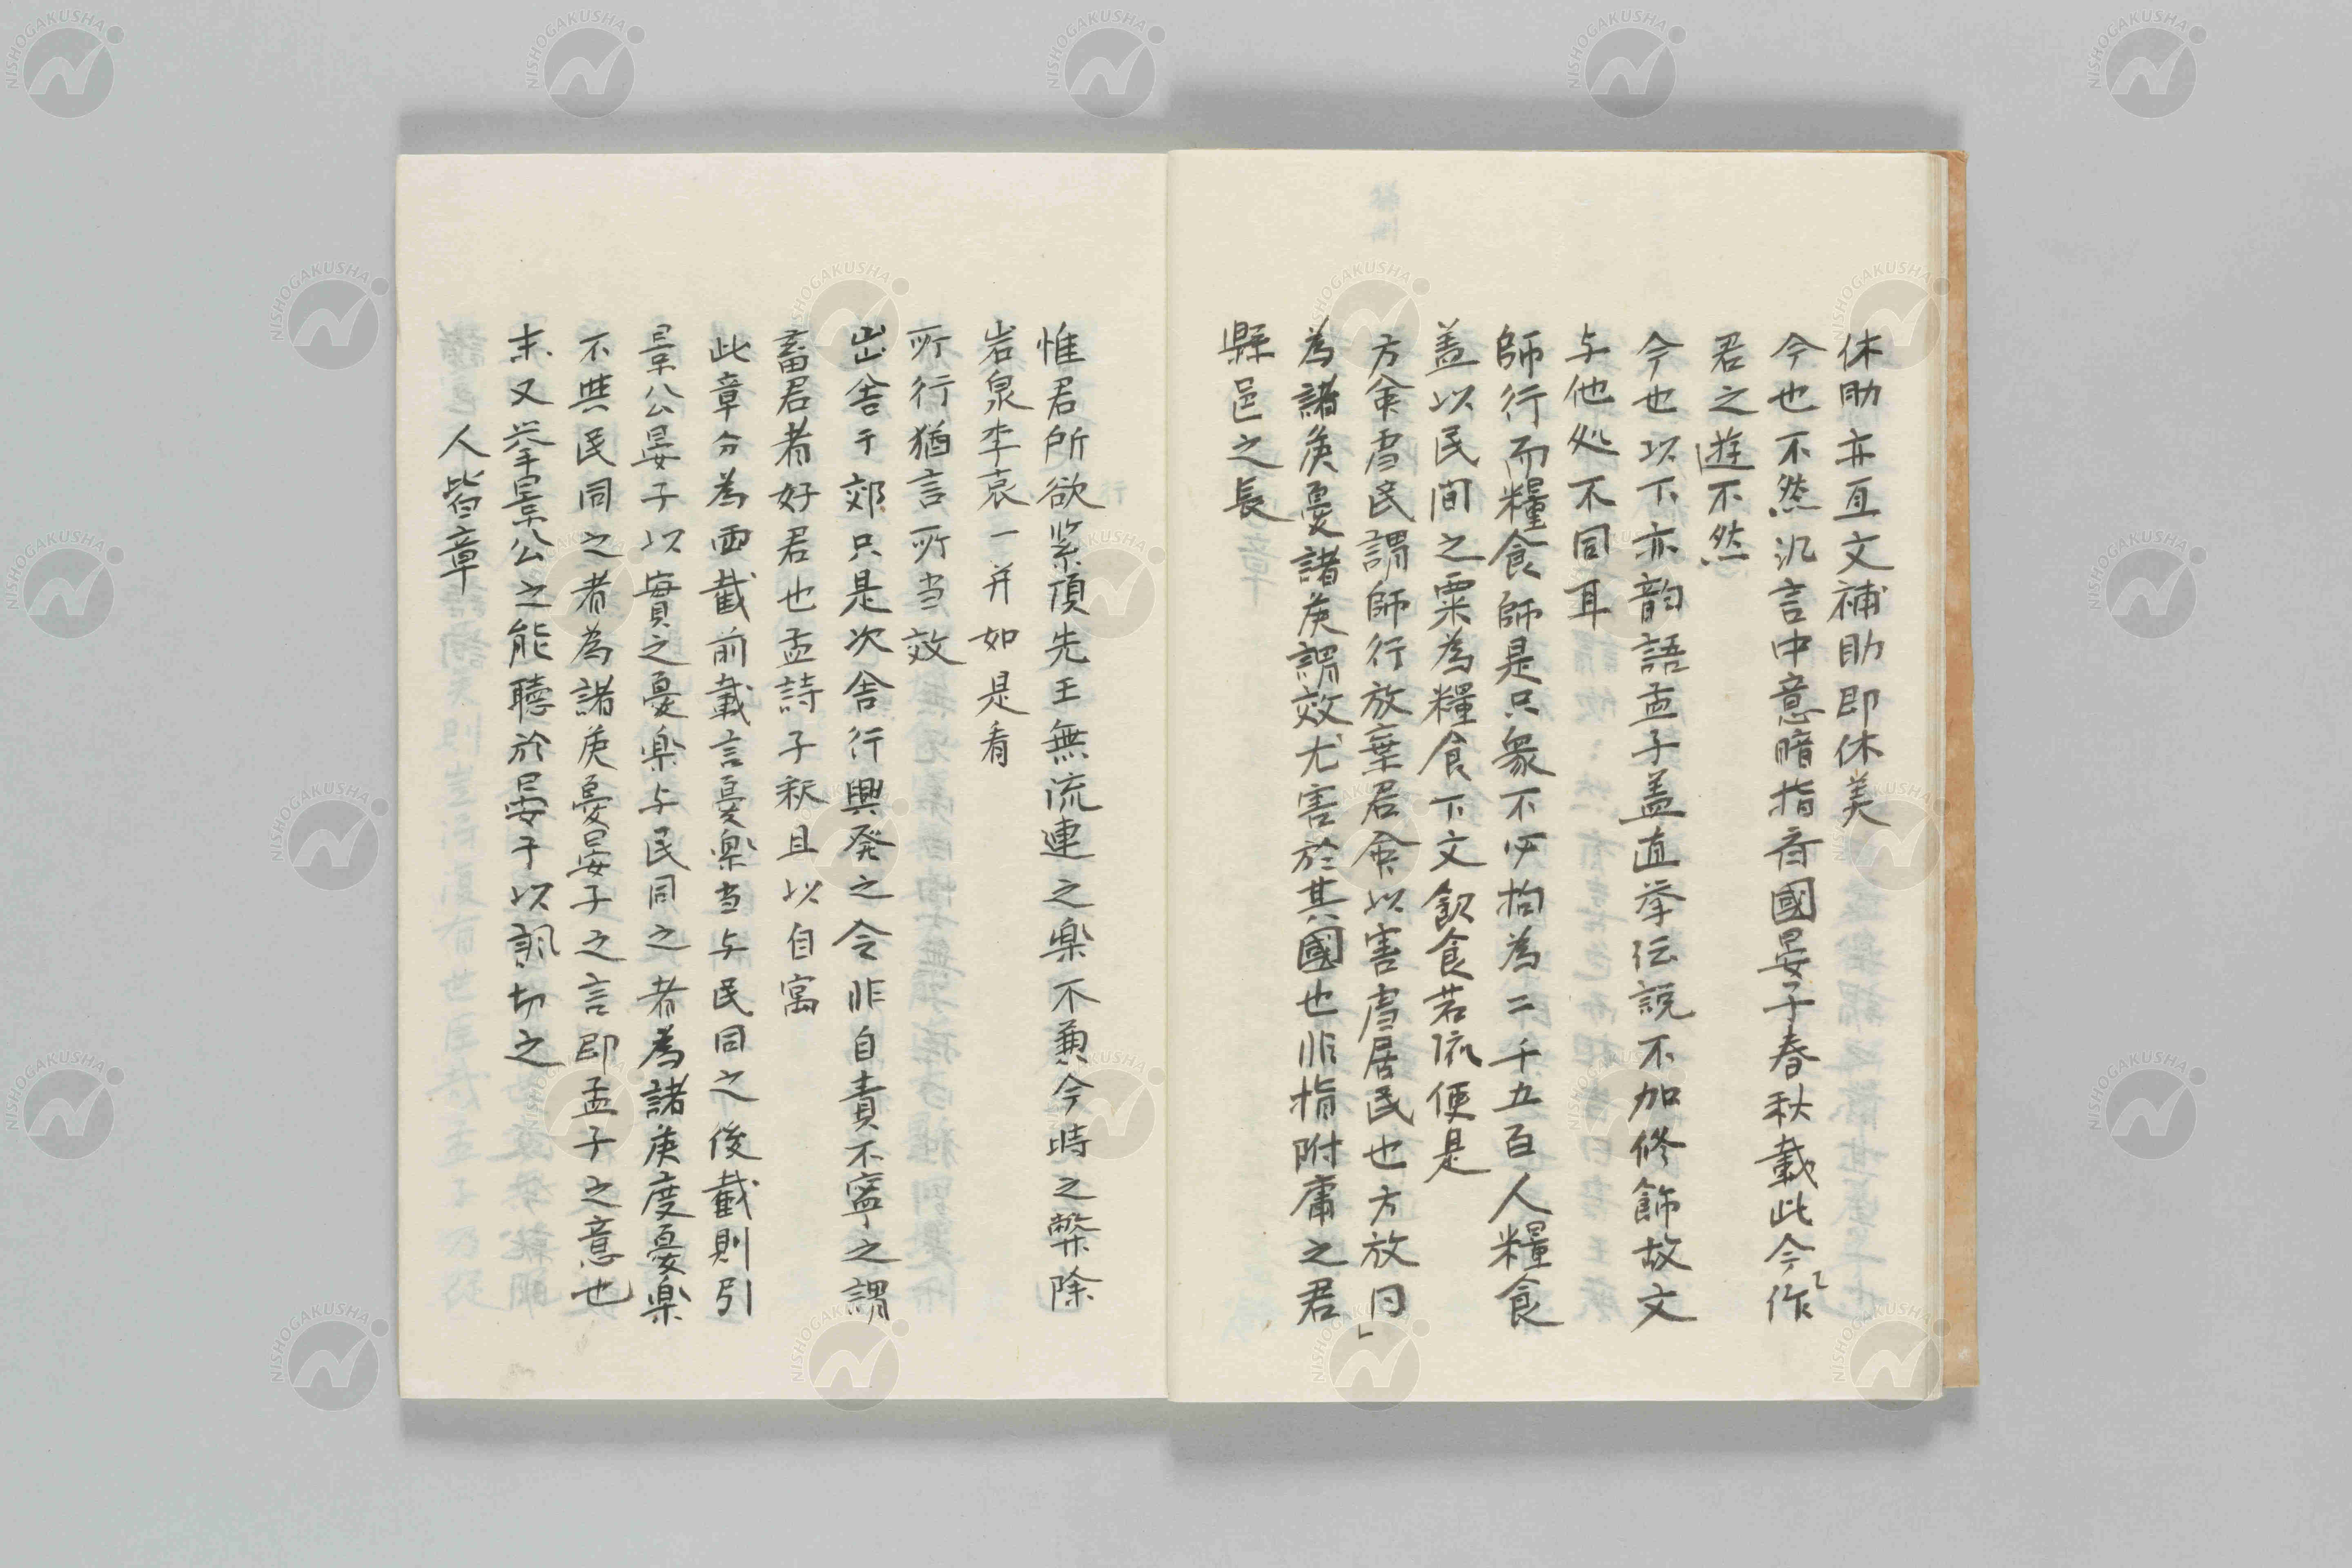 休助亦互文補助即休美
今也不然汎言中意暗指斉國晏子春秋載此今作
君之遊不然
今也以下亦韵語孟子盖直挙伝説不加修飾故文
与他処不同耳
師行而糧食師是只衆不必拘為二千五百人糧食
盖以民間之粟為糧食下文飲食若流便是
方命虐民謂師行放棄君命以害虐居民也方放同
為諸侯憂諸侯謂效尤害於其國也非指附庸之君
縣邑之長
惟君所欲緊頂先王無流連之楽不兼今時之弊除
岩泉李哀一并如是看
所行猶言所当效
出舎于郊只是次舎行興発之令非自責不寧之謂
畜君者好君也孟詩子釈且以自寓
此章分為両截前載言憂楽当与民同之後截則引
景公晏子以實之憂楽与民同之者為諸侯度憂楽
不與民同之者為諸侯憂晏子之言即孟子之意也
末又挙景公之能聴於晏子以諷切之
人皆章
NISHOGAKUSHA